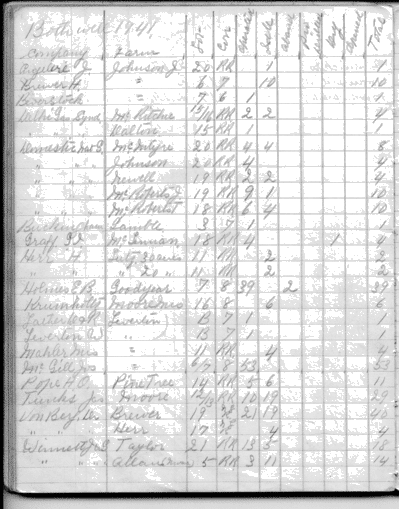 Bothwell 1941
Company Farm Lot Con Operating Idle Aband Dry Total
Johnson J. 20 RR 1 1
Brewer H. " 6 7 10 10
" 7 6 1 1
McRitchie 15/16 RR 2 2 4
" Walton 15 RR 1 1
Domestic McIntyre 20 RR 4 4 8
" " Johnson 20 RR 4 4
" " Newell 19 RR 2 2 4
" " McRoberts J. 19 RR 9 1 10
" " McRoberts 18 RR 6 4 10
Buckingham Gamble 3 7 1 1
Graff McLennan 18 RR 4 1 4
Herr H. 11 RR 2 2
" " " 20 " 11 RR 2 2
Holmes E.B. Goodyear 7 8 39 2 39
Krumholtz Moore Mrs 16 8 6 6
Leverton B 7 1 1
Leverton W " B 7 1 1
Mahler Mrs " 11 RR 4 4
McGill Jos " 6/7 8 53 53
Pope H.O. Pine Tree 14 RR 5 6 11
Tunks Jos Moore RR 10 19 29
Von Berg Brewer 19 21 19 40
" " Herr 17 4 4
Winnett J.S. Taylor 21 RR 13 5 18
" " " 5 RR 3 11 14